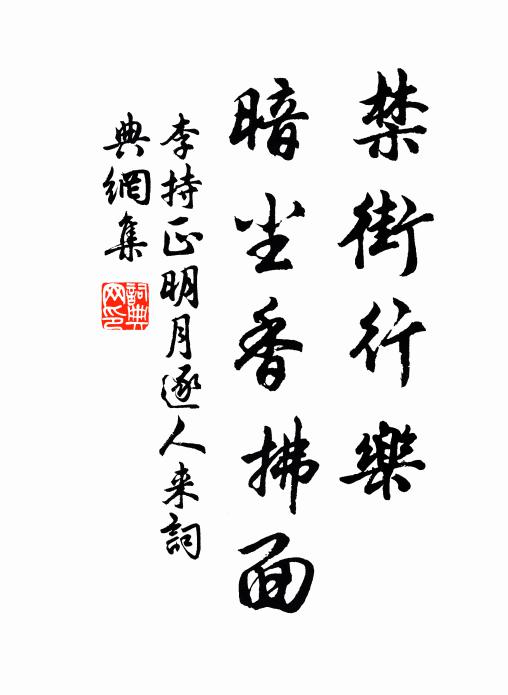 禁街行樂
暗尘香拂面
李持正明月逐人来詞
典網集
詞典網印